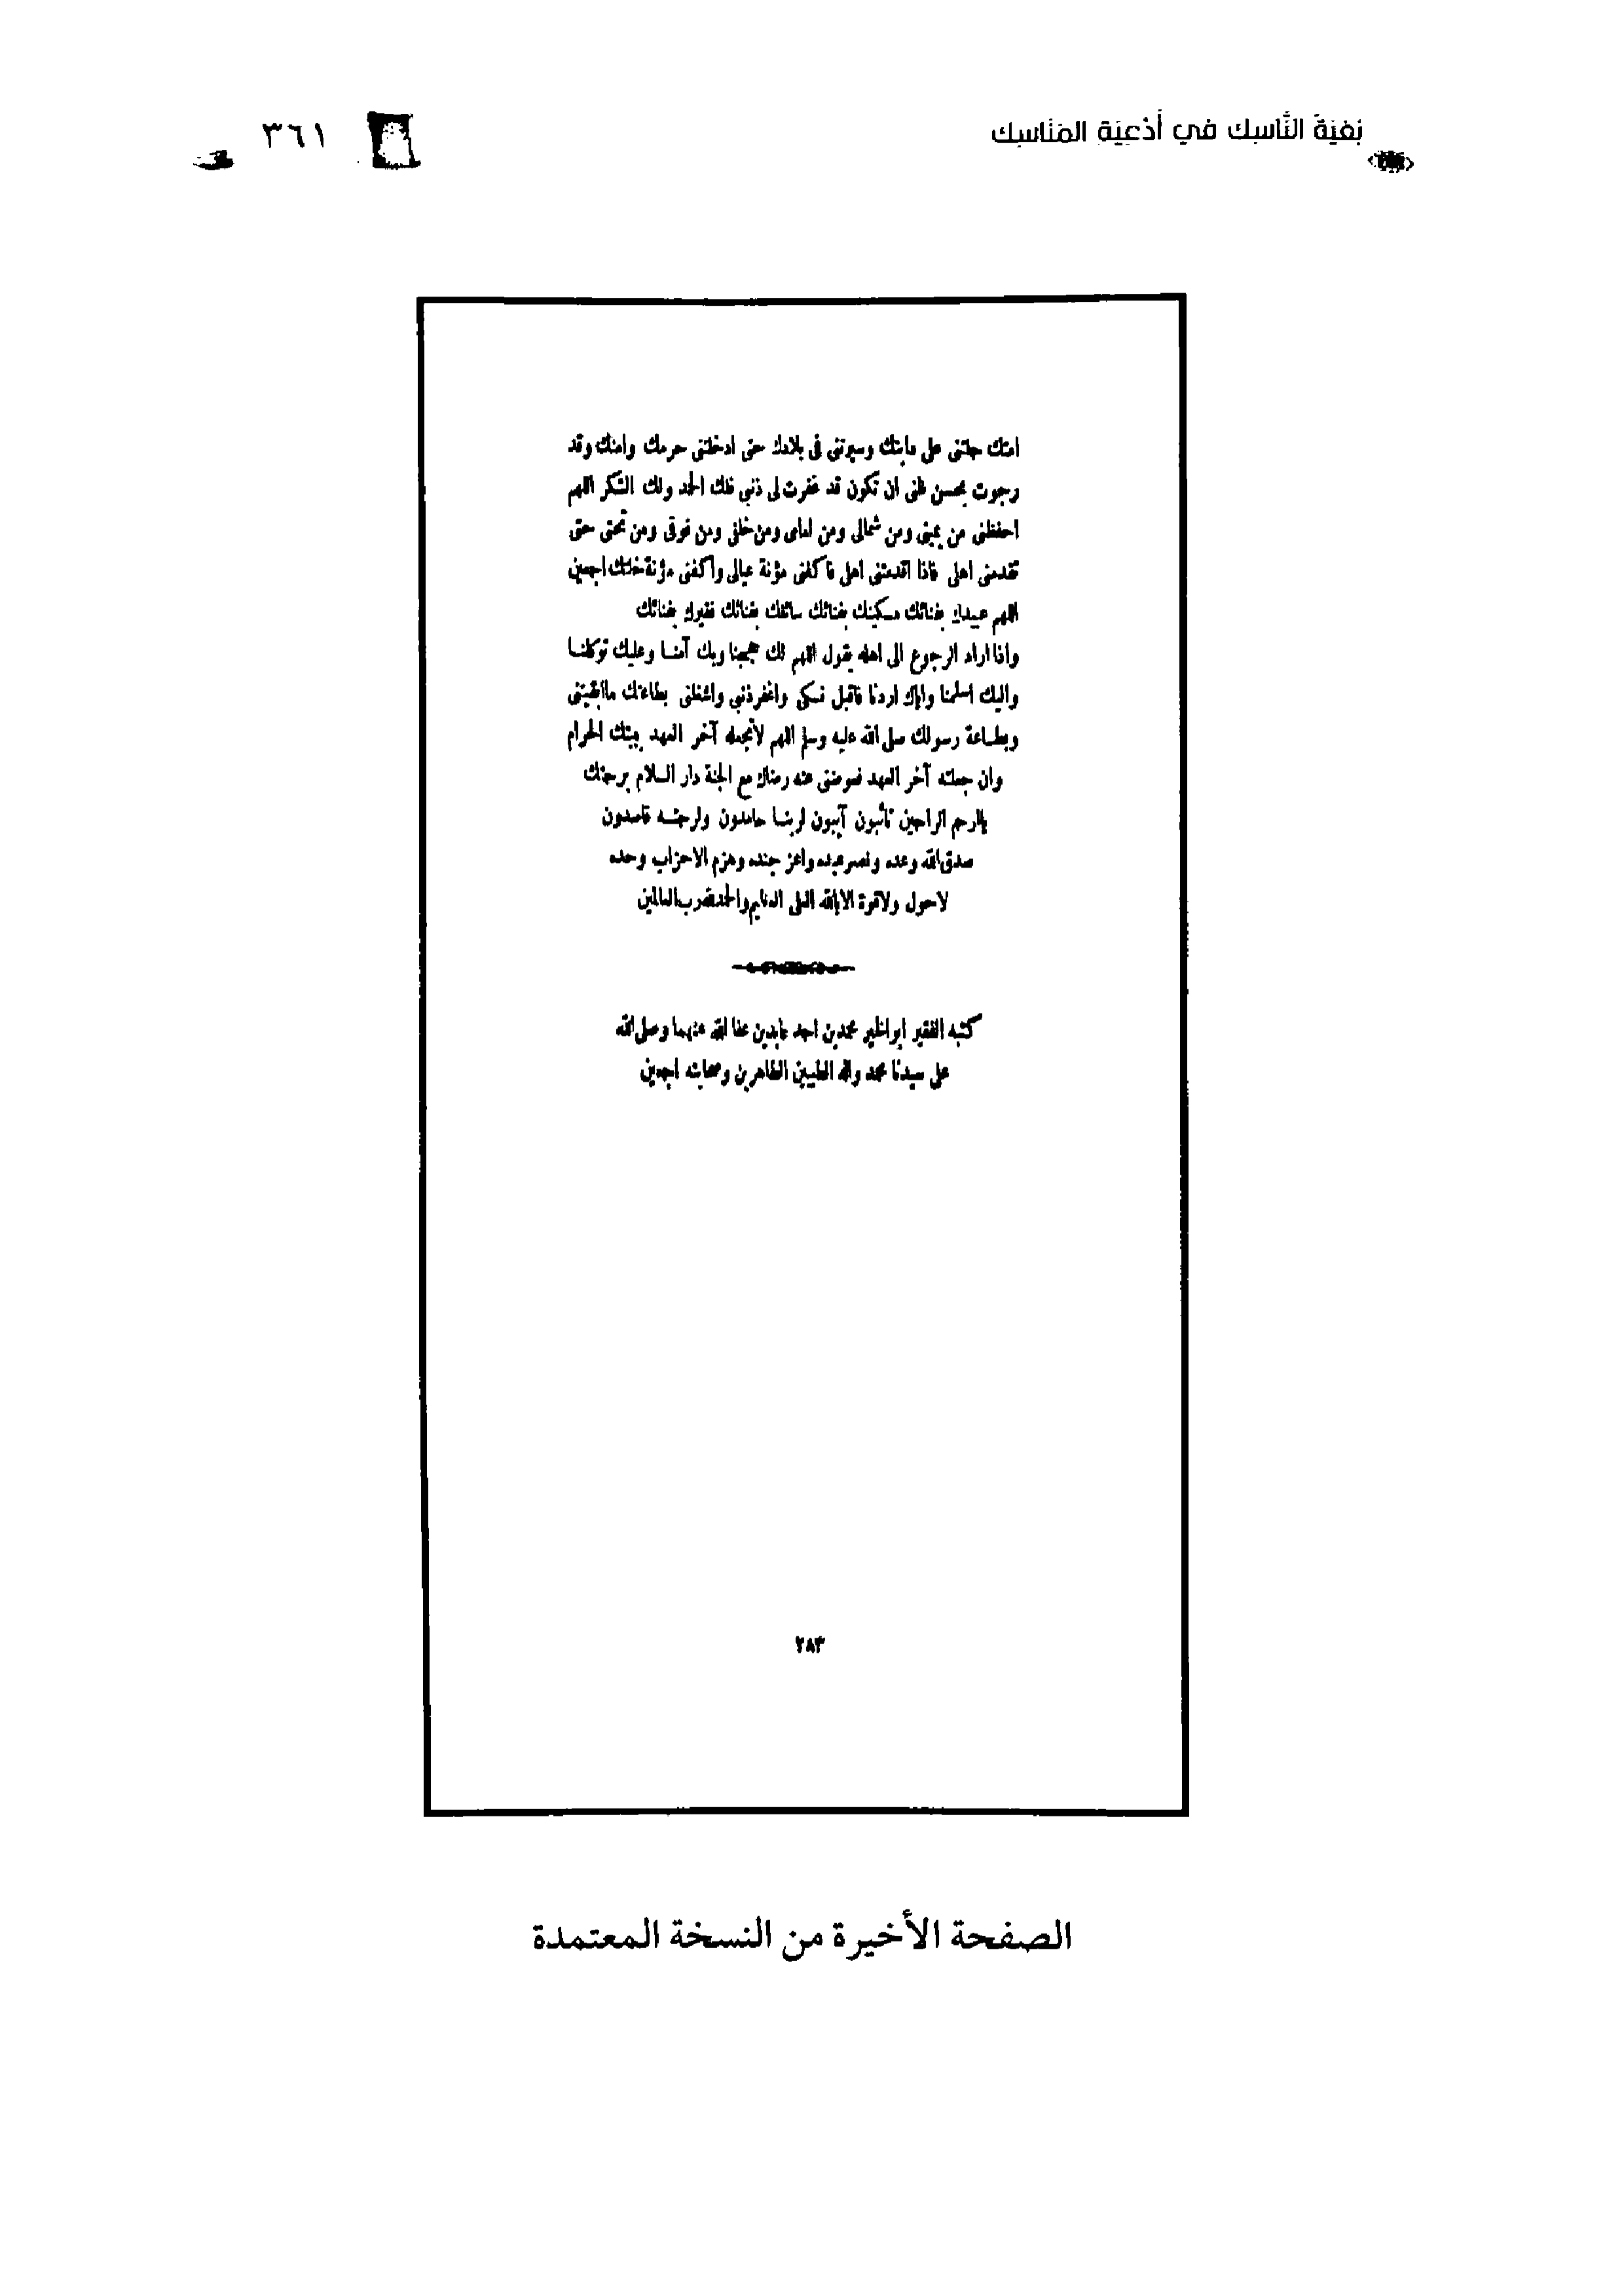 بُغيَةُ النَّاسِك في أَدْعِيَة المَنَاسِك
٣٦١
امتك حملتنى على دابتك وسيرتنى فى بلادك حتى ادخلتنى حرمك وامنك وقد
رجوت بحسن ظنى ان تكون قد غفرت لى ذنبى فلك الحمد ولك الشكر اللهم
احفظنى من يمينى ومن شمالى ومن امامى ومن خلفى ومن فوقى ومن تحتى حتى
تقدمنى اهلى فاذا اقدمتنى اهلى فاكفنى مؤنة عيالى واكفنى مؤنة خلقك اجمعين
اللهم عبيدك بفنائك مسكينك بفنائك سائلك بفنائك فقيرك بفنائك
واذا اراد الرجوع الى اهله يقول اللهم لك حججنا وبك آمنا وعليك توكلنا
واليك اسلمنا واياك اردنا فاقبل نسكى واغفر ذنبى واشغلنى بطاعتك ما ابقيتنى
وبطاعة رسولك صلى الله عليه وسلم اللهم لا تجعله آخر العهد ببيتك الحرام
وان جعلته آخر العهد فعوضنى عنه رضاك مع الجنة دار السلام برحمتك
يا ارحم الراحمين تائبون آيبون لربنا حامدون ولرحمته قاصدون
صدق الله وعده ونصر عبده واعز جنده وهزم الاحزاب وحده
لا حول ولا قوة الا بالله العلى العظيم والحمد لله رب العالمين
كتبه الفقير ابو الخير محمد بن احمد عابدين عفا الله عنهما وصلى الله
على سيدنا محمد وآله الطيبين الطاهرين وصحابته اجمعين
٢٨٣
الصفحة الأخيرة من النسخة المعتمدة